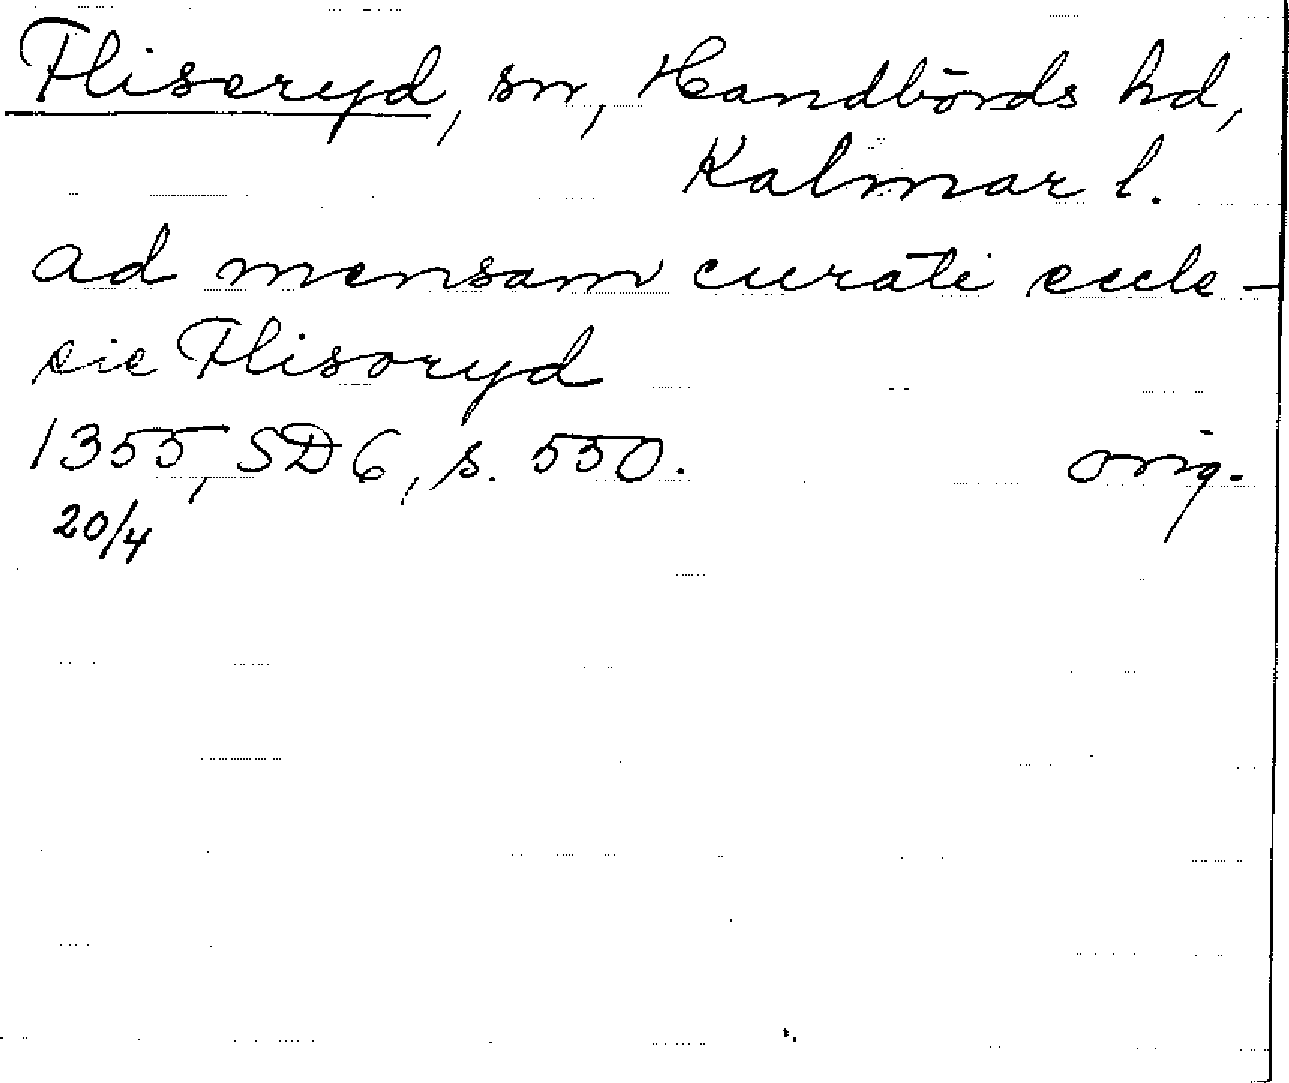 Fliseryd, sn, Handbörds hd,
Kalmar l.
ad mensam curati eccle-
sie Flisoryd
1355, SD 6, s. 550. orig.
20/4